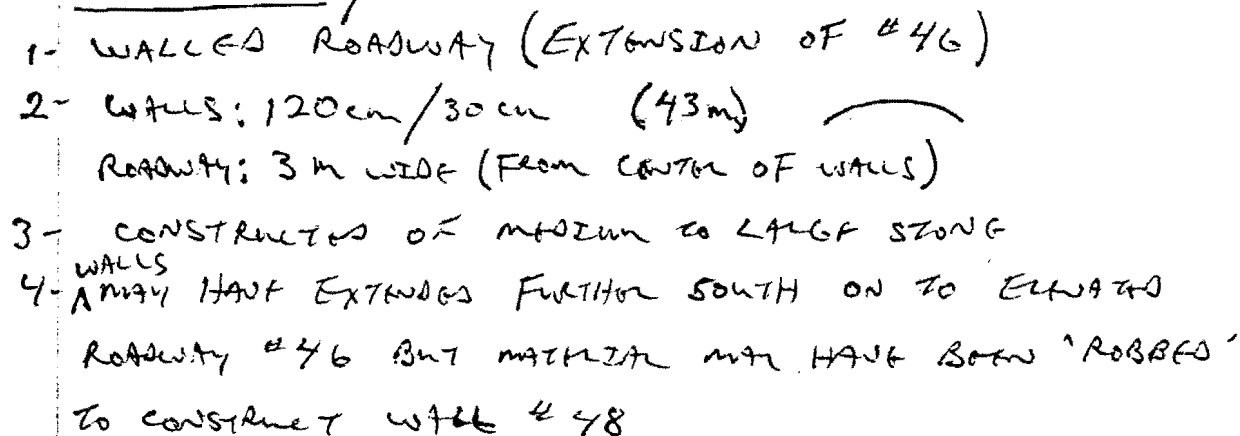 1- WALLED ROADWAY (EXTENSION OF #46)
2- WALLS: 120cm/30cm (43m)
ROADWAY: 3m WIDE (FROM CENTER OF WALLS)
3- CONSTRUCTED OF MEDIUM TO LARGE STONE
WALLS
4- ^ MAY HAVE EXTENDED FURTHER SOUTH ON TO ELEVATED
ROADWAY #46 BUT MATERIAL MAY HAVE BEEN 'ROBBED'
TO CONSTRUCT WALL #48